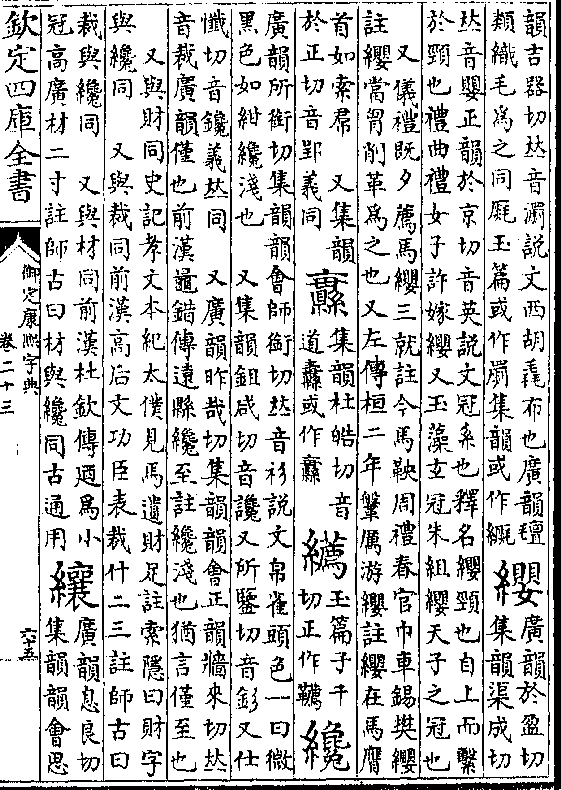 韻吉器切𠀤音瀱說文西胡毳布也廣韻氊
類織毛爲之同𦋺玉篇或作罽集韻或作
纓
廣韻於盈切
集韻渠成切
𠀤音嬰正韻於京切音英說文冠系也釋名纓頸也自上而繫
於頸也禮曲禮女子許嫁纓又玉藻玄冠朱組纓天子之冠也
又儀禮既夕薦馬纓三就註今馬鞅周禮春官巾車錫樊纓
註纓當胷削革爲之也又左傳桓二年鞶厲游纓註纓在馬膺
首如索帬 又集韻
於正切音郢義同
集韻杜皓切音
道纛或作
玉篇子干
切正作韉
纔
廣韻所銜切集韻韻會師銜切𠀤音衫說文帛雀頭色一曰微
黑色如紺纔淺也 又集韻鉏咸切音讒又所鑒切音釤又仕
懺切音鑱義𠀤同 又廣韻昨哉切集韻韻會正韻牆來切𠀤
音裁廣韻僅也前漢鼂錯傳遠縣纔至註纔淺也猶言僅至也
又與財同史記孝文本紀太僕見馬遺財足註索隱曰財字
與纔同 又與裁同前漢高后文功臣表裁什二三註師古曰
裁與纔同 又與材同前漢杜欽傳廼爲小
冠高廣材二寸註師古曰材與纔同古通用
纕
廣韻息良切
集韻韻會思
欽定四庫全書
御定康熙字典
卷二十三
六十五